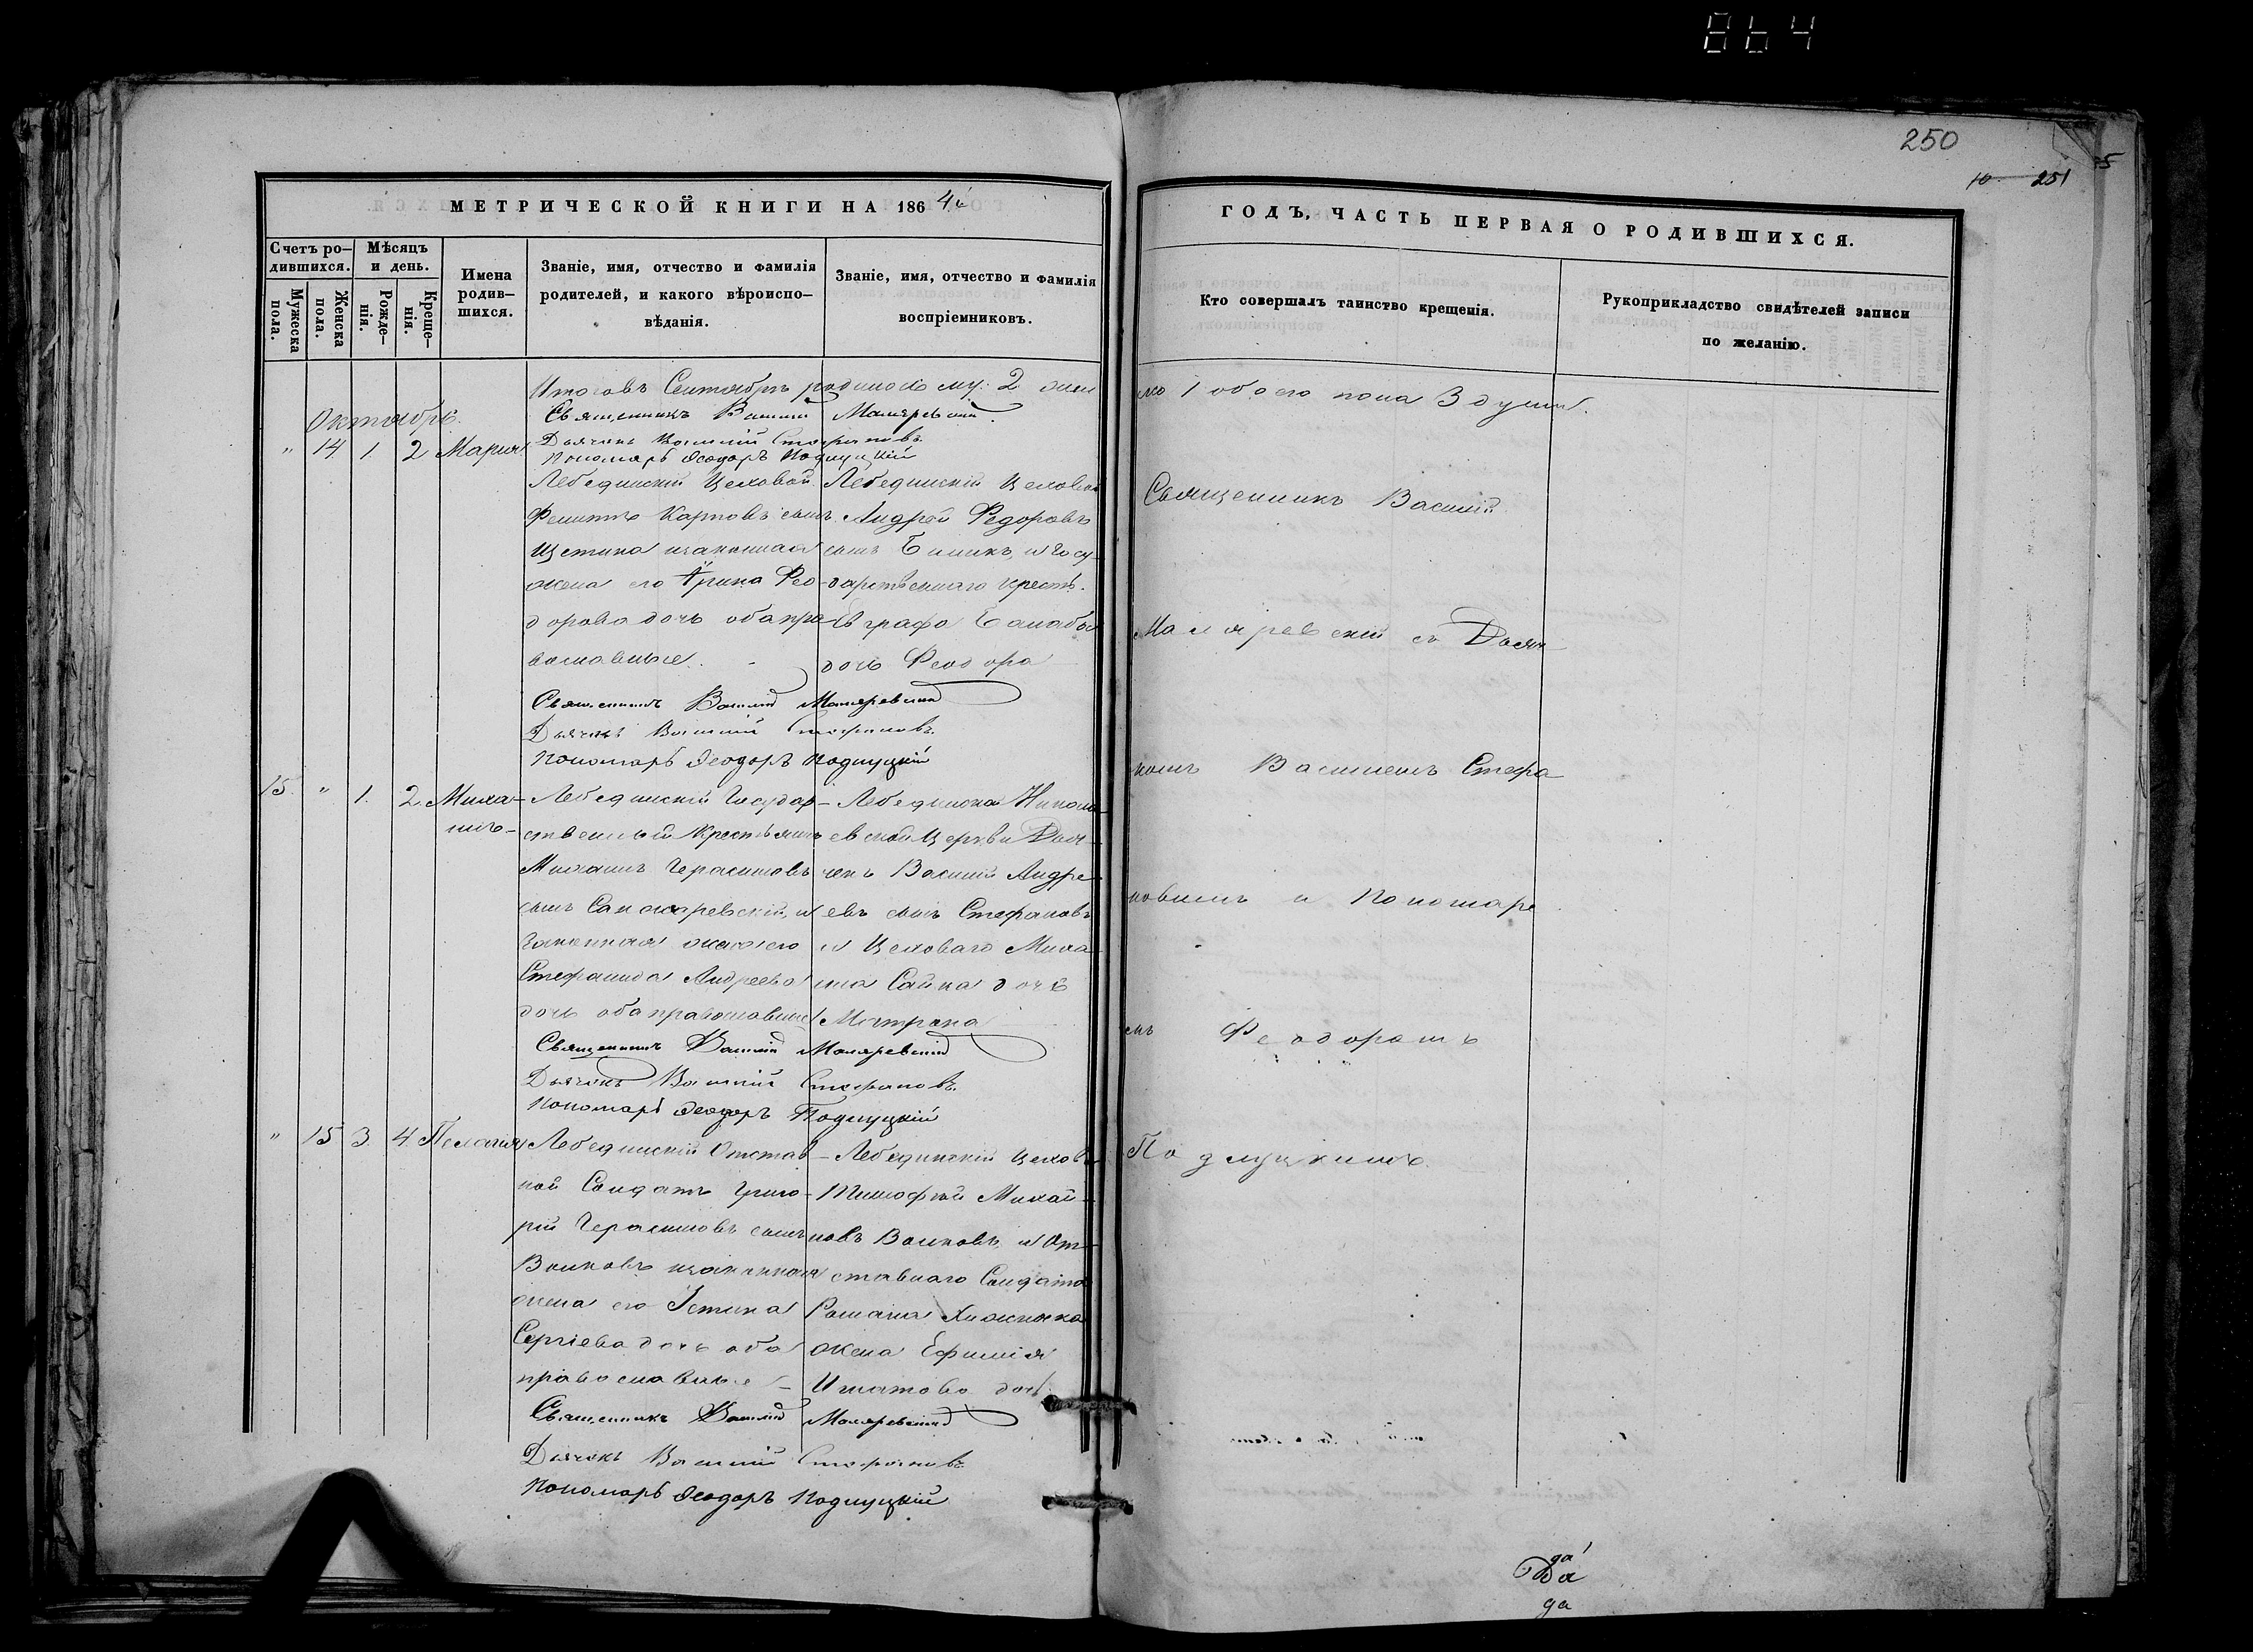 864
250
10 251
5
МЕТРИЧЕСКОЙ КНИГИ НА 1864й
ГОДЪ, ЧАСТЬ ПЕРВАЯ О РОДИВШИХСЯ.
Счетъ ро-
дившихся.
Мужеска
пола.
Женска
пола.
Мѣсяцъ
и день.
Рожде-
нія.
Креще-
нія.
Имена
родив-
шихся.
Званіе, имя, отчество и фамилія
родителей, и какого вѣроиспо-
вѣданія.
Званіе, имя, отчество и фамилія
воспріемниковъ.
Кто совершалъ таинство крещенія.
Рукоприкладство свидѣтелей записи
по желанію.
Октябрь.
Священникъ Василій Маляревскій
Дьячекъ Василій Стефановъ.
Пономарь Ѳеодоръ Подлуцкій
" 14 1. 2 Мария
Лебединскій Цеховой
Карповъ сынъ
Щетина изаконная
жена его Ірина Фео-
дорова дочь оба пра-
вославные.
Лебединскій Цеховой
Андрей Федоровъ
сынъ Биликъ, и Госу-
дарственнаго крест.
Евграфа
дочь Феодора
Священникъ Василій
Маляревскій съ Дьяч
комъ Василиемъ Стефа
новымъ и Пономаре
мъ Феодоромъ
Подлуцкимъ.
Священникъ Василій Маляревскій
Дьячекъ Василій Стефановъ.
Пономарь Ѳеодоръ Подлуцкій
15. " 1. 2 Миха-
илъ-
Лебединскій Государ-
ственный Крестьянинъ
Михаилъ Герасимовъ
сынъ и
законная жена его
Стефанида Андреева
дочь оба православные
Лебединской Никола
евской Церкви Дья-
чекъ Василій Андре-
евъ сынъ Стефановъ
и Цеховаго Миха-
ила Сайка дочь
Матрона
Священникъ Василій Маляревскій
Дьячекъ Василій Стефановъ.
Пономарь Ѳеодоръ Подлуцкій
" 15 3. 4 Пелагия
Лебединскій Отстав-
ной Солдатъ Григо-
рій Герасимовъ сынъ
Волковъ изаконная
жена его Устина
Сергіева дочь оба
православные
Лебединскій Цехов
Тимофей Михай-
ловъ Волковъ, и От-
ставнаго Солдата
Романа Хижняка
жена Ефимія
Игнатова дочь
Священникъ Василій Маляревскій
Дьячекъ Василій Стефановъ.
Пономарь Ѳеодоръ Подлуцкій
да
Да
да